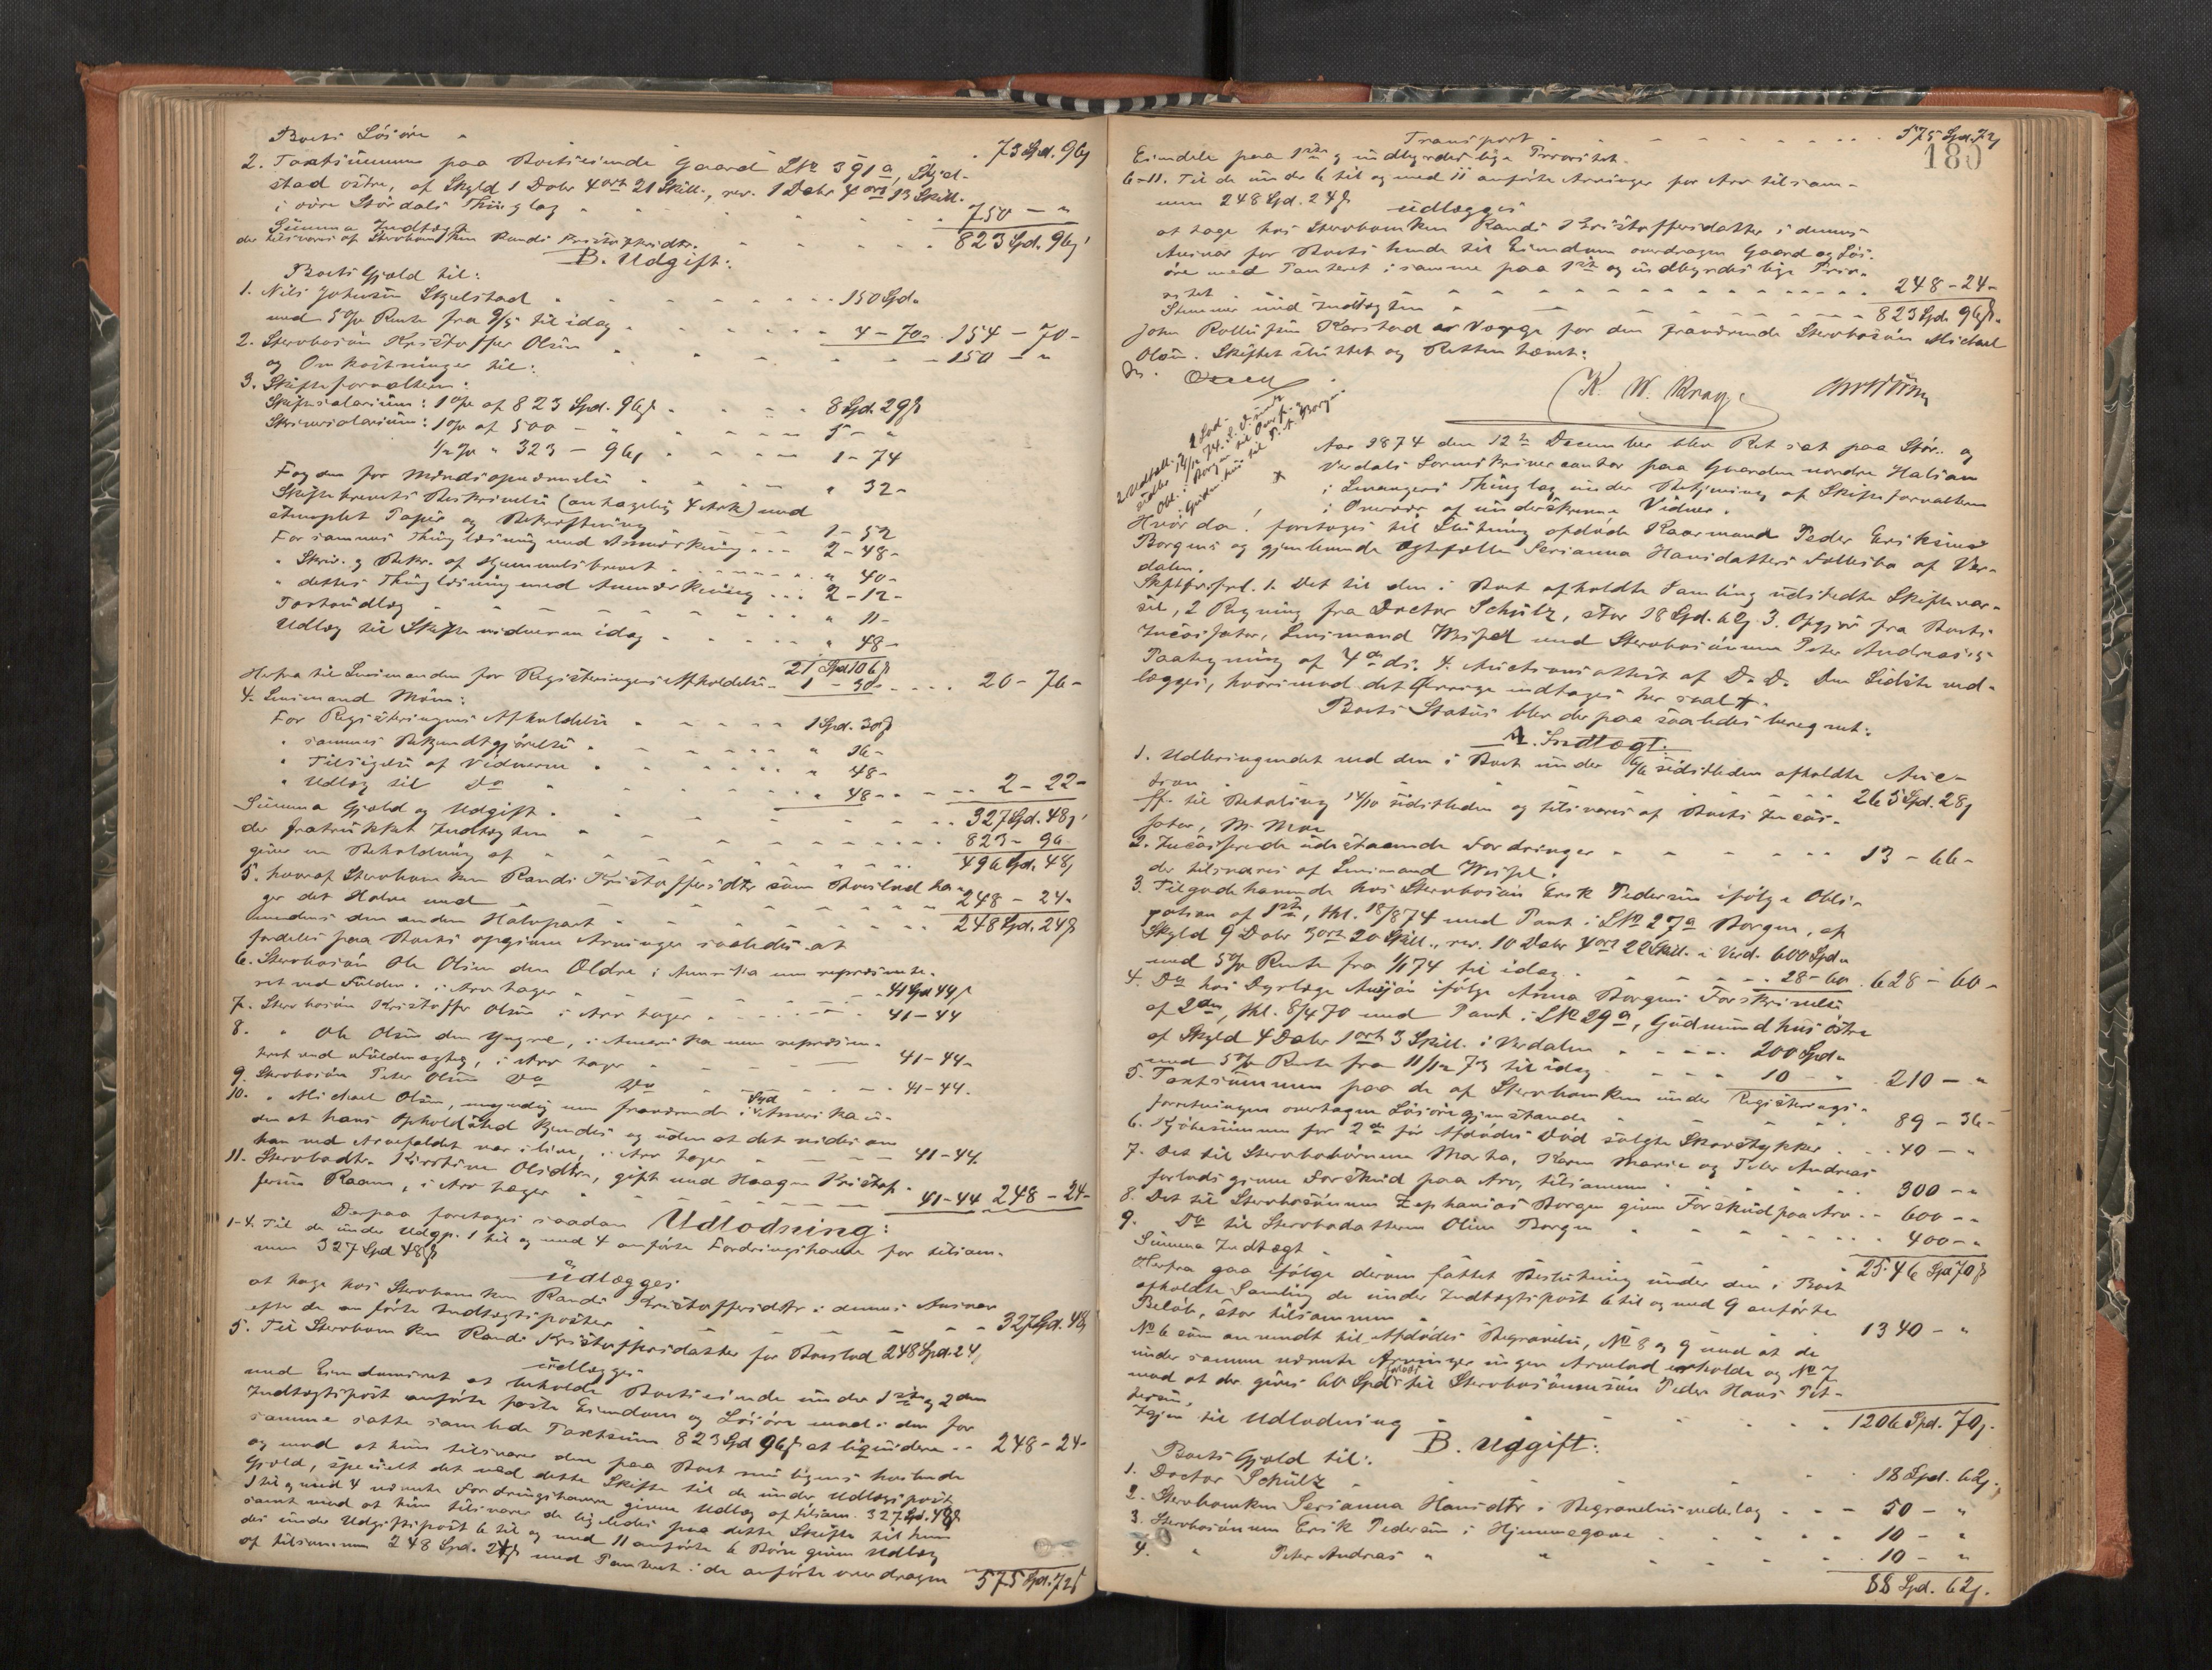 Boets Løsøre - . 73 Spd. 96 ß
2. Taxtsummen paa Boets eiende Gaard LNo 391a, Skjel-
stad østre, af Skyld 1 Dalr 4 ort 21 Skill., rev. 1 Dalr 4 ort 13 Skill.
i øvre Stördals Thinglag - - - 750 - "
Summa Indtægt
der tilsvares af Stervboenken Randi Kristoffersdtr. - - - 823 Spd. 96 ß
B. Udgift:
Boets Gjæld til:
1. Nils Johnsen Skjelstad - - - 150 Spd. "
med 5 % Rente fra 9/5 til idag - - - 4 - 70 . 154 - 70 -
2. Stervbosøn Kristoffer Olsen - - - 150 - "
og Omkostninger til:
3. Skifteforvalteren:
Skiftesalarium: 1 % af 823 Spd. 96 ß - - - 8 Spd. 29 ß
Skriversalarium: 1 % af 500 - " - - - 5 - "
1/2 % " 323 - 96 ß - - - 1 - 74
Fogden for Mændsopnævnelse - - - " 32 -
Skiftebrevets Beskrivelse (antagelig 4 Ark) med
stemplet Papir og Bekræftning - - - 1 - 52
For sammes Thinglæsning med Anmærkning - - - 2 - 48 -
" Skriv. og Bekr. af Hjemmelsbrevet - - - " 40 -
" dettes Thinglæsning med Anmærkning - - - 2 - 12 -
Portoudlæg - - - " 11 -
Udlæg til Skiftevidnerne idag - - - " 48 -
21 Spd. 106 ß
Herfra til Lensmanden for Registreringens Afholdelse - 1 - 30 - - - 20 - 76 -
4. Lensmand Moum:
For Registreringens Afholdelse - - - 1 Spd. 30 ß
" sammes Bekjendtgjørelse - - - " 16 -
" Tilsigelse af Vidnerne - - - " 48 -
" Udlæg til Do - - - " 48 - - - 2 - 22 -
Summa Gjæld og Udgift - - - 327 Spd. 48 ß
der fratrukket Indtægten - - - 823 - 96
giver en Beholdning af - - - 496 Spd. 48 ß
5. hvoraf Stervboenken Randi Kristoffersdtr som Boeslod ta-
ger det Halve med - - - 248 - 24 -
medens den anden Halvpart - - - 248 Spd. 24 ß
fordeles paa Boets opgivne Arvinger saaledes at
6. Stervbosøn Ole Olsen den Ældre i Amerika men repræsente-
ret ved Fuldm. i Arv tager - - - 41 Spd. 44 ß
7. Stervbosøn Kristoffer Olsen i Arv tager - - - 41 - 44
8. " Ole Olsen den Yngre, i Amerika men repræsen-
teret ved Fuldmægtig, i Arv tager - - - 41 - 44 -
9. Stervbosøn Peter Olsen Do Do - - - 41 - 44 -
10. " Michael Olsen, myndig men fraværende i Syd Amerika u-
den at hans Opholdsted kjendes og uden at det vides om
han ved Arvefaldet var i live, i Arv tager - - - 41 - 44
11. Stervbodtr. Kirstine Olsdtr., gift med Haagen Kristof-
fersen Raaen, i Arv tager - - - 41 - 44 248 - 24 -
Derpaa foretoges saadan Udlodning:
1-4. Til de under Udgp. 1 til og med 4 anførte Fordringshavere for tilsam-
men 327 Spd 48 ß
udlægges
at tage hos Stervboenken Randi Kristoffersdtr i dennes Ansvar
efter de anførte Indtægtsposter - - - 327 Spd. 48 ß
5. Til Stervboenken Randi Kristoffersdatter for Boeslod 248 Spd. 24 ß
udlægges
med Eiendomsret at beholde Boets eiende under 1ste og 2den
Indtægtspost anførte faste Eiendom og Løsøre mod i den for
samme satte samlede Taxtsum 823 Spd 96 ß at liquidere - - 248 - 24 -
og mod at hun tilsvarer den paa Boet muligens heftende
Gjæld, specielt det ved dette Skifte til de under Udlægspost
1 til og med 4 nævnte Fordringshavere givne Udlæg af tilsam. 327 Spd. 48 ß
samt mod at hun tilsvarer de ligeledes paa dette Skifte til hen-
des under Udgiftspost 6 til og med 11 anførte 6 Børn givne Udlæg
af tilsammen 248 Spd. 24 ß med Panteret i de anførte overdragne 575 Spd. 72 ß
Transport - - - 575 Spd. 72 ß
180
Eiendele paa 1ste og indbyrdes lige Prioritet.
6-11. Til de under 6 til og med 11 anførte Arvinger for Arv tilsam-
men 248 Spd. 24 ß udlægges
at tage hos Stervboenken Randi Kristoffersdatter i dennes
Ansvar for Boets hende til Eiendom overdragne Gaard og Løs-
øre med Panteret i samme paa 1ste og indbyrdes lige Prio-
ritet - - - 248 - 24 -
Stemmer med Indtægten - - - 823 Spd. 96 ß.
John Rollefsen Karstad er Værge for den fraværende Stervbosøn Michael
Olsen. Skiftet sluttet og Retten hævet:
K. W. Krag
Aar 1874 den 12te December blev Ret sat paa Stør- og
Verdals Sorenskrivercontor paa Gaarden nordre Halsan
i Levangers Thinglag under Betjening af Skifteforvalteren
i Overvær af underskrevne Vidner.
Hvor da: foretoges til Slutning afdøde Kaarmand Peder Eriksens
Borgens og gjenlevende Ægtefælle Serianna Hansdatters Fællesbo af Ver-
dalen.
Skiftfr. frl. 1. Det til den i Boet afholdte Samling udstedte Skiftevar-
sel, 2 Regning fra Doctor Schulz, stor 18 Spd. 62 ß. 3. Opgjør fra Boets
Incassator, Lensmand Wessel med Stervbosønnen Peter Andreas's
Paategning af 4de ds. 4. Auctionsattest af D. D. Den Sidste ved-
lægges, hvorimod det Øvrige indtages her saal.
Boets Status blev derpaa saaledes beregnet:
A. Indtægt:
1. Udbringendet ved den i Boet under 6/6 sidstleden afholdte Auc-
tion - - - 265 Spd. 28 ß
ff. til Betaling 14/10 sidstleden og tilsvares af Boets Incas-
sator, M. Moe
2. Incasserede udestaaende Fordringer - - - 13 - 66 -
der tilsvares af Lensmand Wessel.
3. Tilgodehavende hos Stervbosøn Erik Pedersen ifølge Obli-
gation af 1ste, thl. 18/8 74 med Pant i LNo 27a Borgen, af
Skyld 9 Dalr 3 ort 20 Skill., rev. 10 Dalr 4 ort 22 Skill. i Verd. 600 Spd. "
med 5 % Rente fra 1/1 74 til idag - - - 28 - 60 . 628 - 60 -
4. Do hos Dyrlæge Ausjøn ifølge Anna Borgens Forskrivelse
af 2den, thl. 8/4 70 med Pant i LNo 29a, Gudmundhus østre
af Skyld 4 Daler 1 ort 3 Skill. i Verdalen - - - 200 Spd. "
med 5 % Rente fra 11/12 73 til idag - - - 10 - " . 210 - "
5. Taxtsummen paa de af Stervboenken under Registrerings-
forretningen overtagne Løsøregjenstande - - - 89 - 36 -
6. Kjøbesummen for 2de før Afdødes Død solgte Skovstykker - - - 40 - "
7. Det til Stervbobørnene Marta, Karen Marie og Peter Andreas
forlods givne Forskud paa Arv, tilsammen - - - 300 - "
8. Det til Stervbosønnen Zephanias Borgen givne Forskud paa Arv - - 600 - "
9. Do til Stervbodatteren Oline Borgen - - - 400 - "
Summa Indtægt - - - 2546 Spd 70 ß
Herfra gaa ifølge derom fattet Beslutning under den i Boet
afholdte Samling de under Indtægtspost 6 til og med 9 anførte
Beløb, stor tilsammen - - - 1340 - "
No 6 som anvendt til Afdødes Begravelse, No 8 og 9 mod at de
under samme nævnte Arvinger ingen Arvelod erholde og No 7
mod at der gives 60 Spd. forlods til Stervbosønnesøn Peder Hans Pet-
ersen,
Igjen til Udlodning - - - 1206 Spd. 70 ß.
B. Udgift:
Boets Gjæld til:
1. Doctor Schulz - - - 18 Spd. 62 ß.
2. Stervboenken Serianna Hansdtr i Begravelsesvederlag - - - 50 - "
3. Stervbosønnen Erik Pedersen i Hjemmegave - - - 10 - "
4. " Peter Andreas " " - - - 10 - "
88 Spd. 62 ß.